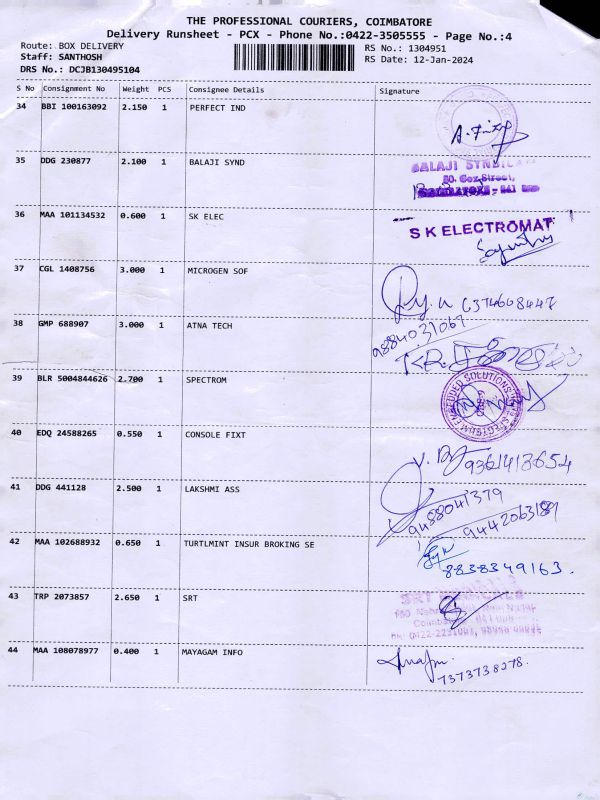 THE PROFESSIONAL COURIERS, COIMBATORE
Delivery Runsheet - PCX - Phone No.:0422-3505555 - Page No.:4
Route: BOX DELIVERY RS No.: 1304951
Staff: SANTHOSH RS Date: 12-Jan-2024
DRS No.: DCJB130495104
S No Consignment No Weight PCS Consignee Details Signature
34 BBI 100163092 2.150 1 PERFECT IND
35 DDG 230877 2.100 1 BALAJI SYND
BALAJI
36 MAA 101134532 0.600 1 SK ELEC
S K ELECTROMAT
37 CGL 1408756 3.000 1 MICROGEN SOF
6374668447
9884031067
38 GMP 688907 3.000 1 ATNA TECH
39 BLR 5004844626 2.700 1 SPECTROM
SPECTRUM EMBEDDED SOLUTIONS
40 EDQ 24588265 0.550 1 CONSOLE FIXT
9361413654
41 DDG 441128 2.500 1 LAKSHMI ASS
9488041379
9442063189
42 MAA 102688932 0.650 1 TURTLMINT INSUR BROKING SE
8838349163.
43 TRP 2073857 2.650 1 SRT
44 MAA 108078977 0.400 1 MAYAGAM INFO
7373738278.